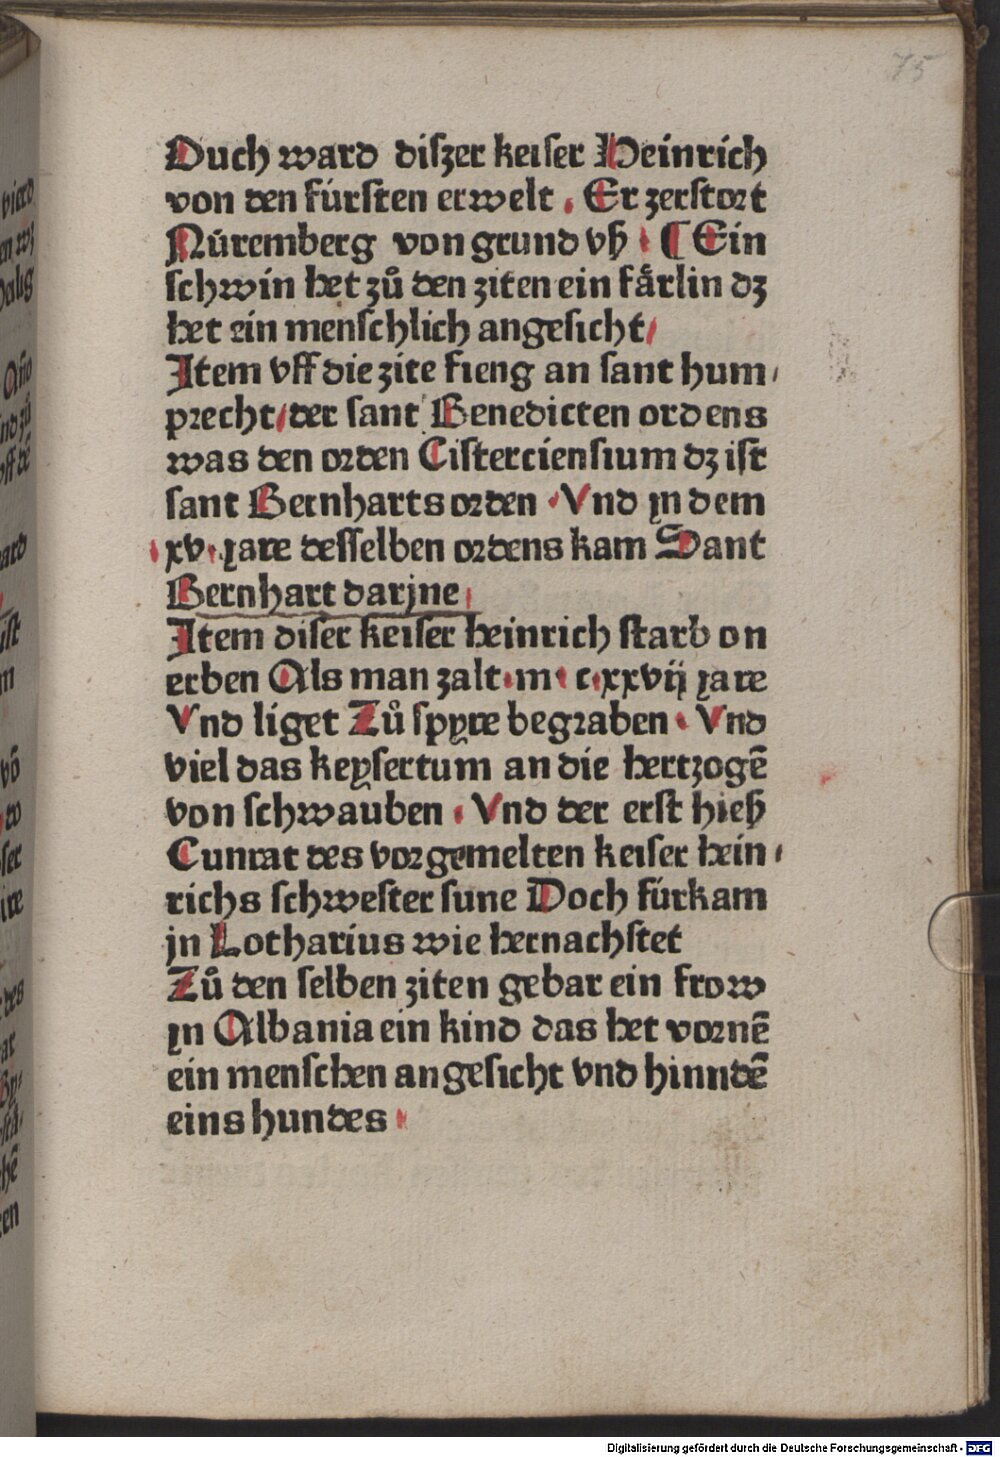 75
Ouch ward diſzer keiſer Heinrich
von den fúrſten erwelt . Er zerſtort
Núremberg von grund vß . ¶ Ein
ſchwin het zů den ziten ein fårlin dz
het ein menſchlich angeſicht/
Item vff die zite fieng an ſant hum⸗
precht/der ſant Benedicten ordens
was den orden Ciſtercienſium dz iſt
ſant Bernharts orden . Vnd ȷn dem
.xv.ȷare deſſelben ordens kam Sant
Bernhart darȷne/
Item diſer keiſer heinrich ſtarb on
erben Als man zalt.m.c.xxvij ȷare
Vnd liget Zů ſpyre begraben . Vnd
viel das keyſertum an die hertzogē
von ſchwauben . Vnd der erſt hieß
Cunrat des vorgemelten keiſer hein⸗
richs ſchweſter ſune Doch fúrkam
jn Lotharius wie hernachſtet
Zů den ſelben ziten gebar ein frow
ȷn Albania ein kind das het vornē
ein menſchen angeſicht vnd hinndē
eins hundes .
Digitalisierung gefördert durch die Deutsche Forschungsgemeinschaft - DFG